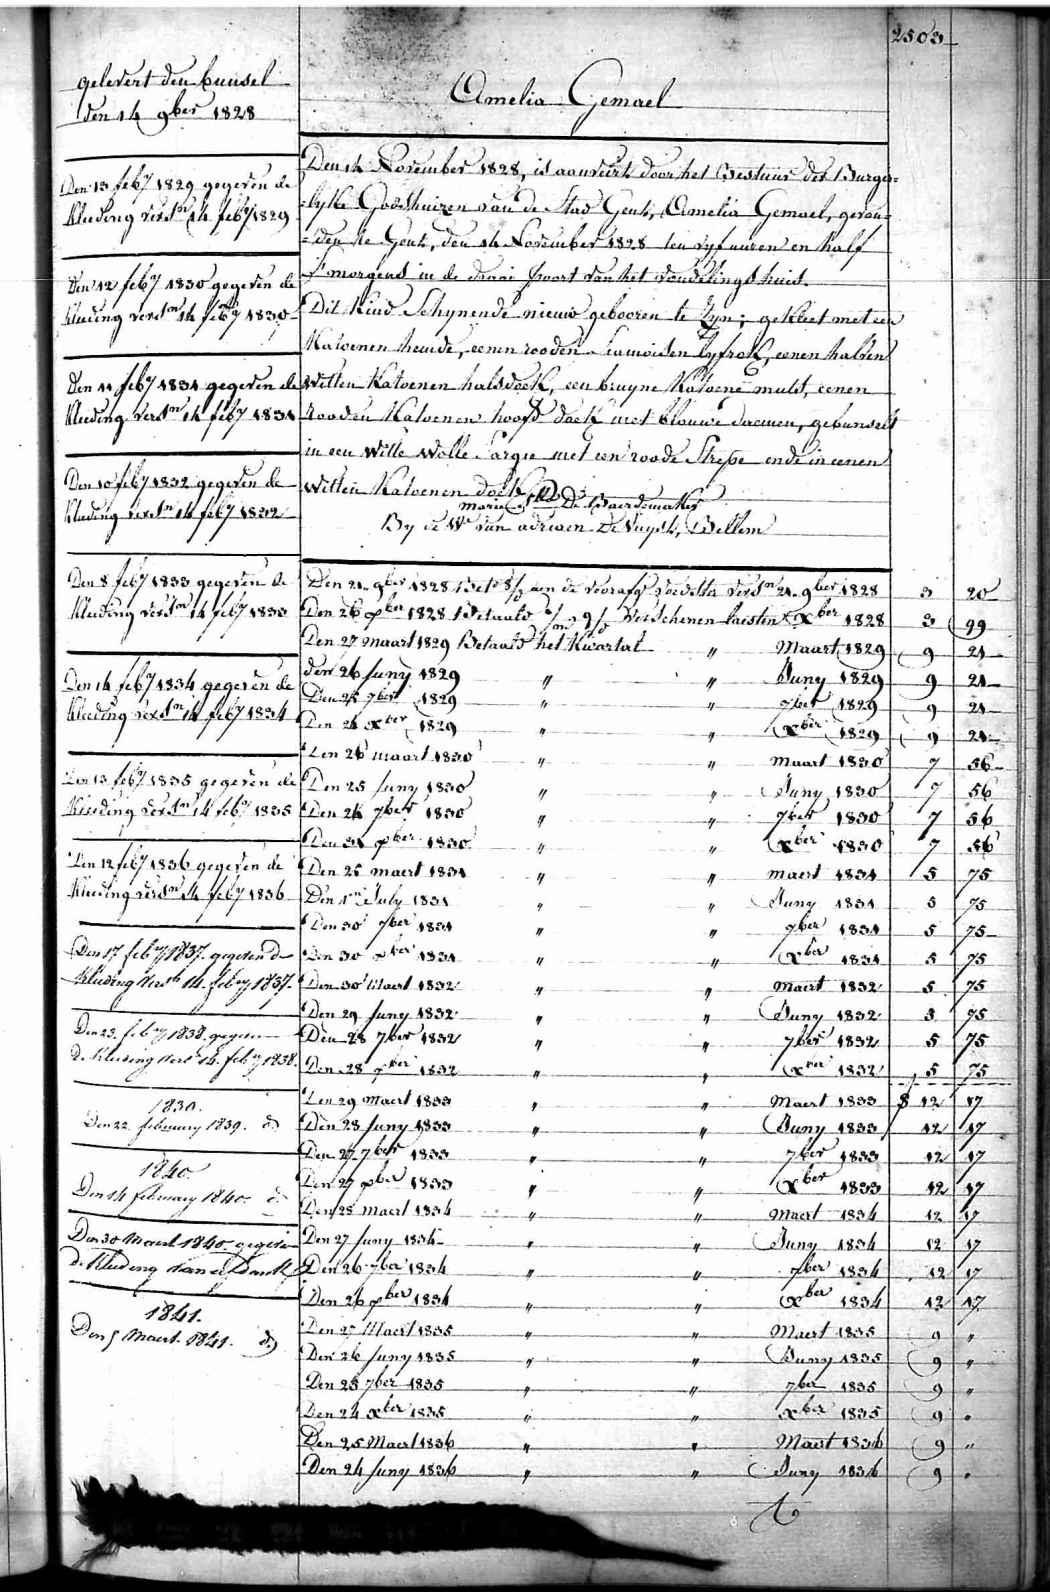 2503
gelevert den bunsel
den 14 9ber 1828
Den 13 feby 1829 gegeven de
kleeding verstn 14 feby 1829
Den 12 feby 1830 gegeven de
kleeding verstn 14 feby 1830
Den 11 feby 1831 gegeven de
kleeding verstn 14 feby 1831
Den 10 feby 1832 gegeven de
kleeding verstn 14 feby 1832
Den 8 feby 1833 gegeven de
kleeding verstn 14 feby 1833
Den 14 feby 1834 gegeven de
kleeding verstn 14 feby 1834
Den 13 feby 1835 gegeven de
kleeding verstn 14 feby 1835
Den 12 feby 1836 gegeven de
kleeding verstn 14 feby 1836
Den 17 feby 1837. gegeven de
kleeding verst 14. feby 1837.
Den 23. feby 1838. gegeven
de kleeding verst 14. feby 1838.
1839.
Den 22 february 1839. do
1840.
Den 14 february 1840. do
Den 30 Maert 1840 gegeven
de kleeding
1841.
Den 5 Maert. 1841. do
Amelia Gemael
Den 14 November 1828, is aanveert door het Bestuur der Burger=
=lyke Godshuizen van de Stad Gent, Amelia Gemael, gevon=
=den te Gent, den 14 November 1828 ten vyf uuren en half
s'morgens in de draai poort van het vondelingshuis.
Dit Kind Schynende nieuw gebooren te zyn; gekleet met een
Katoenen hemde, eenen rooden Siamoisen lyfrok, eenen halven
witten Katoenen halsdoek, een bruyne Katoene muts, eenen
rooden Katoenen hoofd doek met blouwe daemen, gebunselt
in een witte wolle Sargie met een roode Strepe ende in eenen
witten Katoenen doek
Marie De Baerdemaker
By de We van adriaen De Vuyst, Bellem
Den 21 9ber 1828 aen de voedster verstn 21 9ber 1828 3 20
Den 26 xber 1828 Betaald Verschenen laisten xber 1828 3 99
Den 27 maart 1829 Betaald het Kwartal " Maart 1829 9 21
den 26 Juny 1829 " " Juny 1829 9 21
Den 25 7ber 1829 " " 7ber 1829 9 21
Den 24 xber 1829 " " xber 1829 9 21
Den 26 maart 1830 " " maart 1830 7 56
Den 25 Juny 1830 " " Juny 1830 7 56
Den 24 7ber 1830 " " 7ber 1830 7 56
Den 31 xber 1830 " " xber 1830 7 56
Den 25 maert 1831 " " maert 1831 5 75
Den 1en July 1831 " " Juny 1831 5 75
Den 30 7ber 1831 " " 7ber 1831 5 75
Den 30 xber 1831 " " xber 1831 5 75
Den 30 Maert 1832 " " maert 1832 5 75
Den 29 Juny 1832 " " Juny 1832 5 75
Den 28 7ber 1832 " " 7ber 1832 5 75
Den 28 xber 1832 " " xber 1832 5 75
Den 29 Maert 1833 " " Maert 1833 12 17
Den 28 Juny 1833 " " Juny 1833 12 17
Den 27 7ber 1833 " " 7ber 1833 12 17
Den 27 xber 1833 " " xber 1833 12 17
Den 28 maert 1834 " " Maert 1834 12 17
Den 27 Juny 1834 " " Juny 1834 12 17
Den 26 7ber 1834 " " 7ber 1834 12 17
Den 26 xber 1834 " " xber 1834 12 17
Den 27 Maert 1835 " " Maert 1835 9 "
Den 26 Juny 1835 " " Juny 1835 9 "
Den 25 7ber 1835 " " 7ber 1835 9 "
Den 24 xber 1835 " " xber 1835 9 "
Den 25 Maert 1836 " " Maert 1836 9 "
Den 24 Juny 1836 " " Juny 1836 9 "